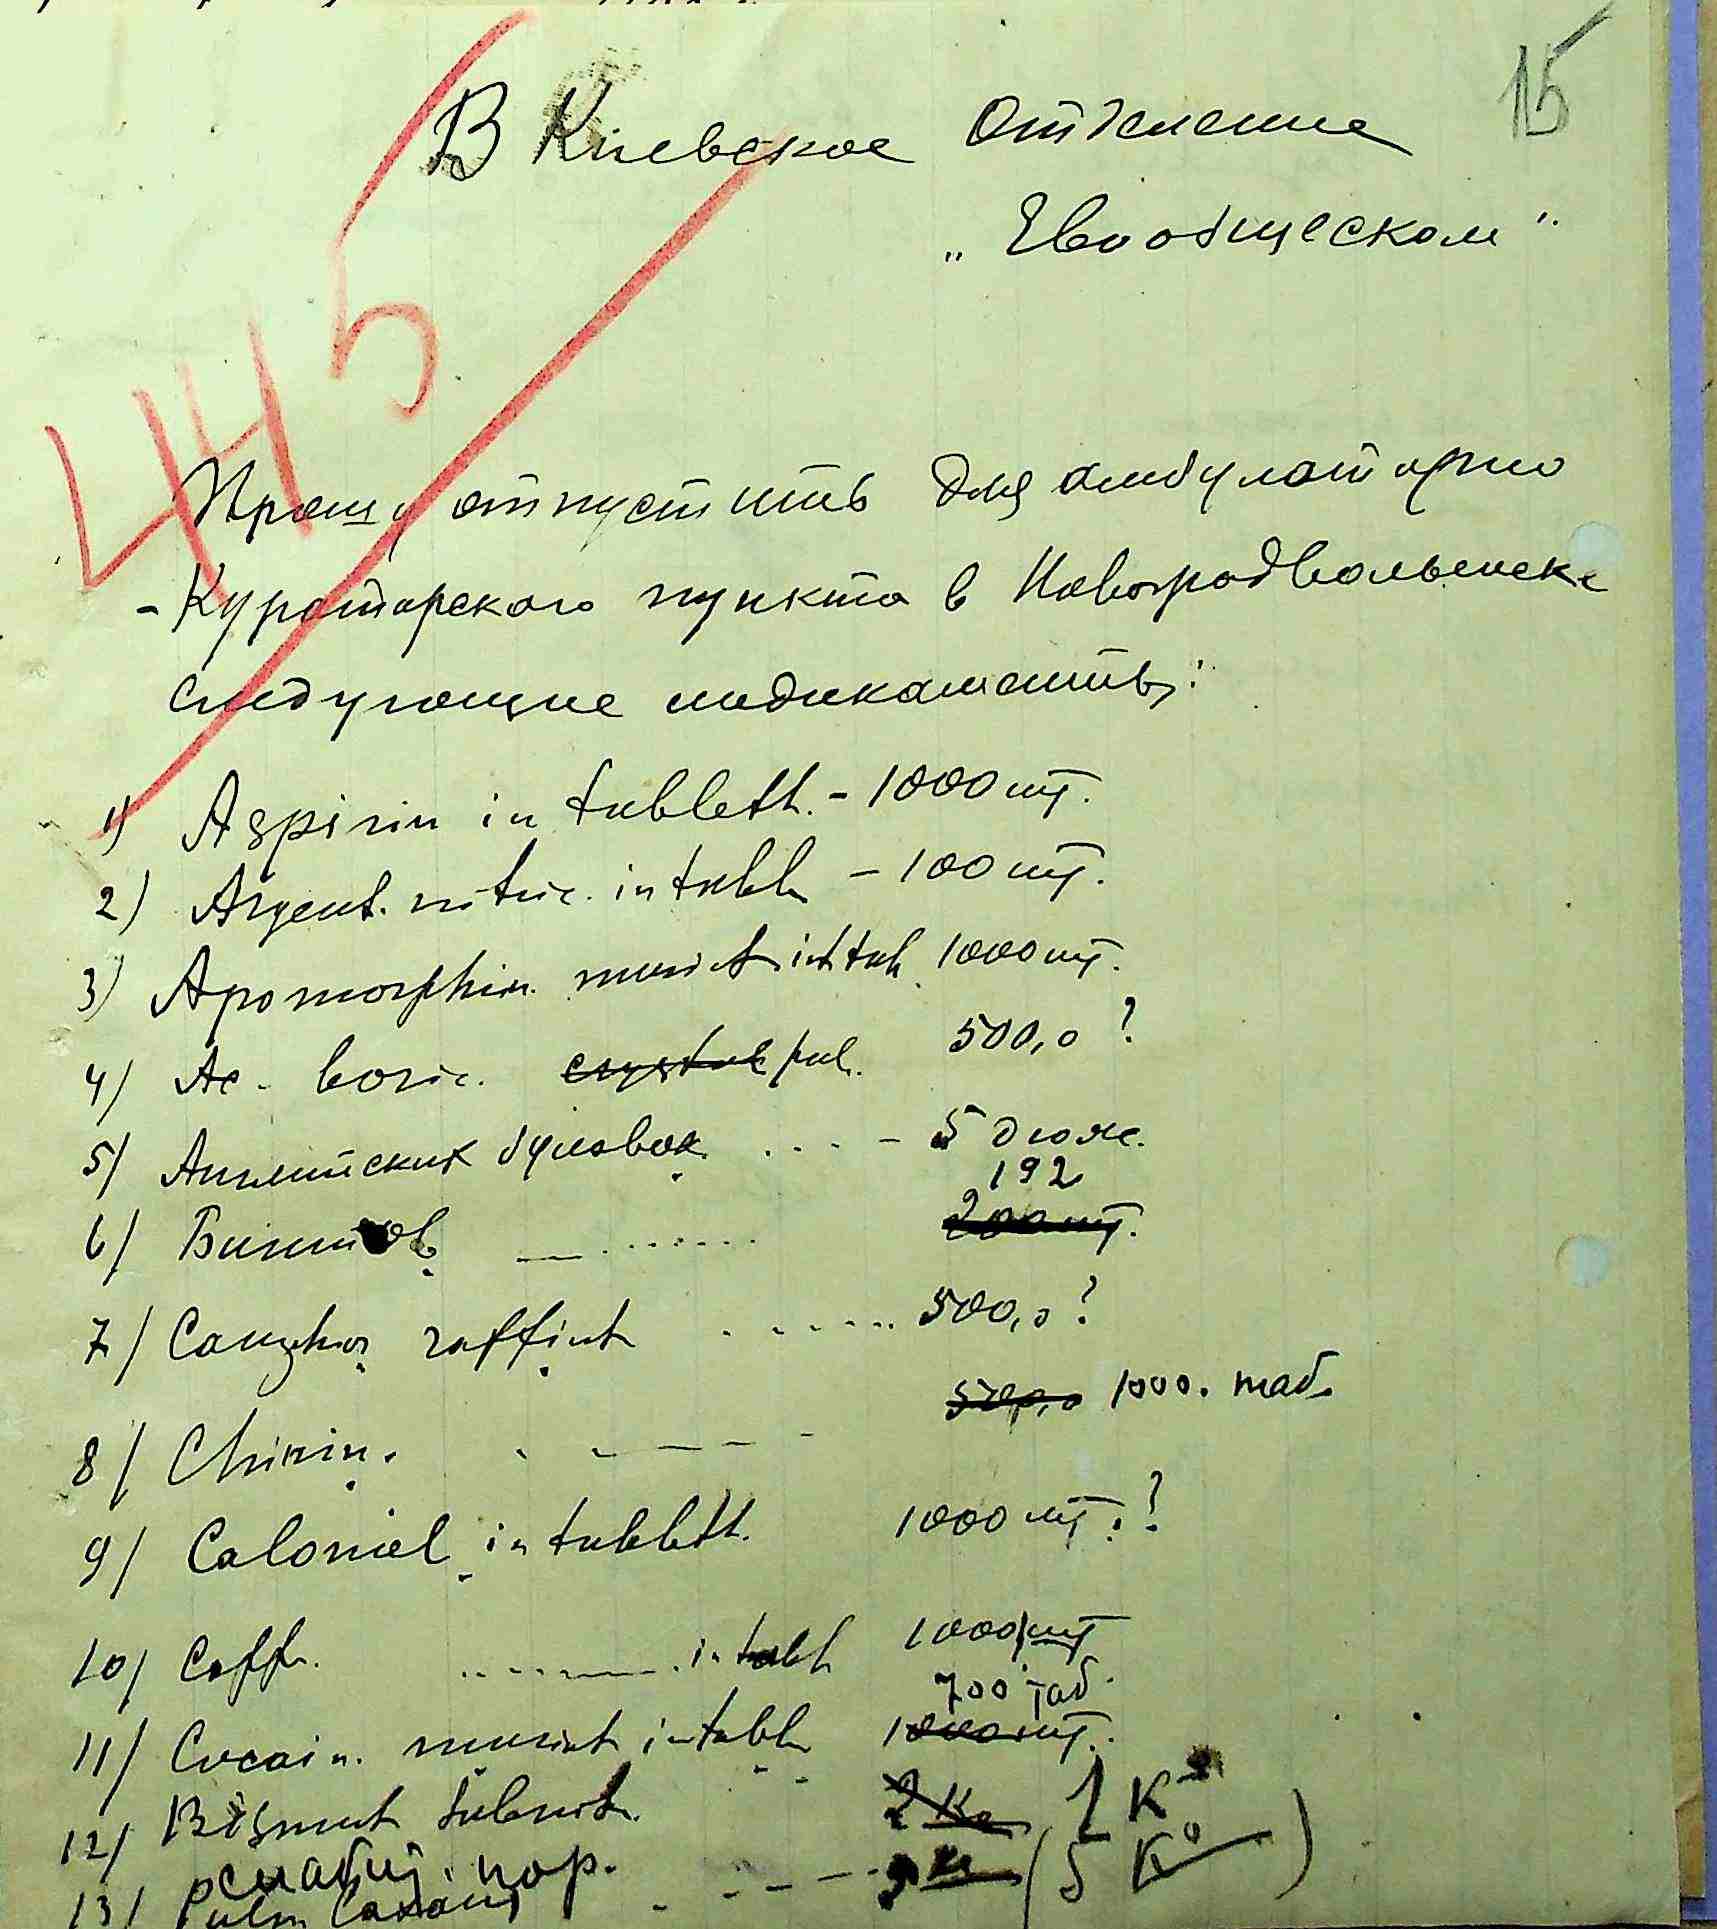 15
В Киевское Отделение
„Евообщеском"
445
Прошу отпустить для амбулаторно
-Кураторского пункта в Новоградвольнске
следующие медикаменты:
1) Aspirin in tablett. - 1000 шт.
2) Argent. nitric. in tabl - 100 шт.
3) Apomorphin. muriat in tab. 1000 шт.
4) Ac. boric. crystal pul. 500,0 ?
5) Английских булавок. ... - 5 дюж.
192
6) Бинтов ... 200 шт.
7) Camphor raffint ... 500,0 ?
8) Chinin. ... 500,0 1000. таб.
9) Calomel in tablett. 1000 шт. ?
10) Coff. ... in tabl 1000 шт
700 таб.
11) Cocain. muriat in tabl 1000 шт.
12) Bismut subnit. 2 Ko 1 Ko
слабит. пор.
13) Pulv. Laxans ... (5 Ko)